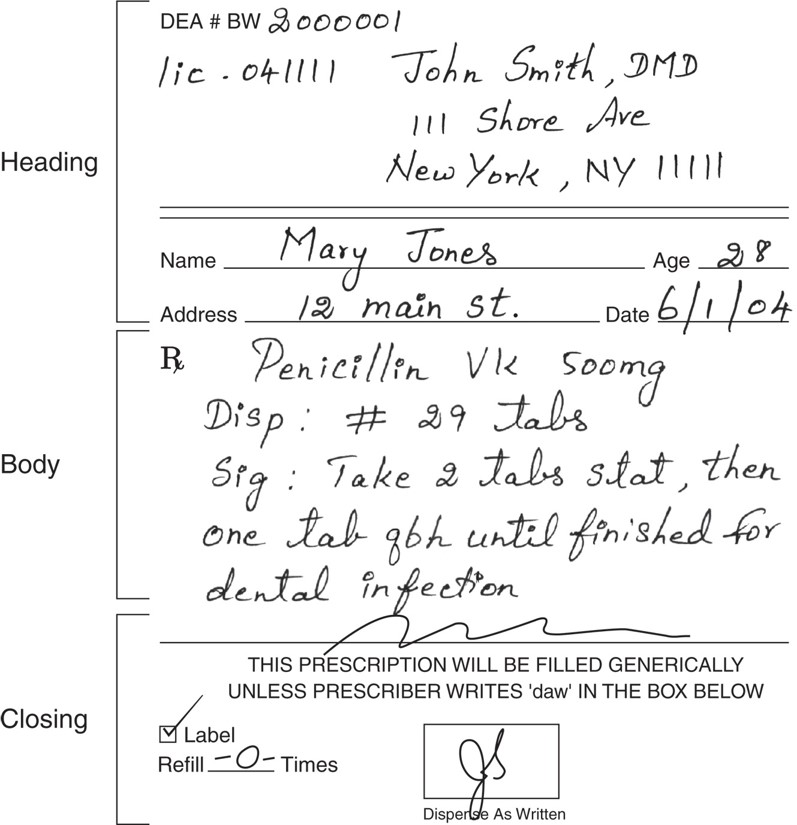 DEA # BW 2000001
lic. 041111 John Smith, DMD
111 Shore Ave
Heading
New York, NY 11111
Name Mary Jones Age 28
Address 12 main st. Date 6/1/04
℞ Penicillin Vk 500mg
Disp: # 29 tabs
Body
Sig: Take 2 tabs stat, then
one tab q6h until finished for
dental infection
THIS PRESCRIPTION WILL BE FILLED GENERICALLY
UNLESS PRESCRIBER WRITES 'daw' IN THE BOX BELOW
Closing
Label
Refill -0- Times
Dispense As Written